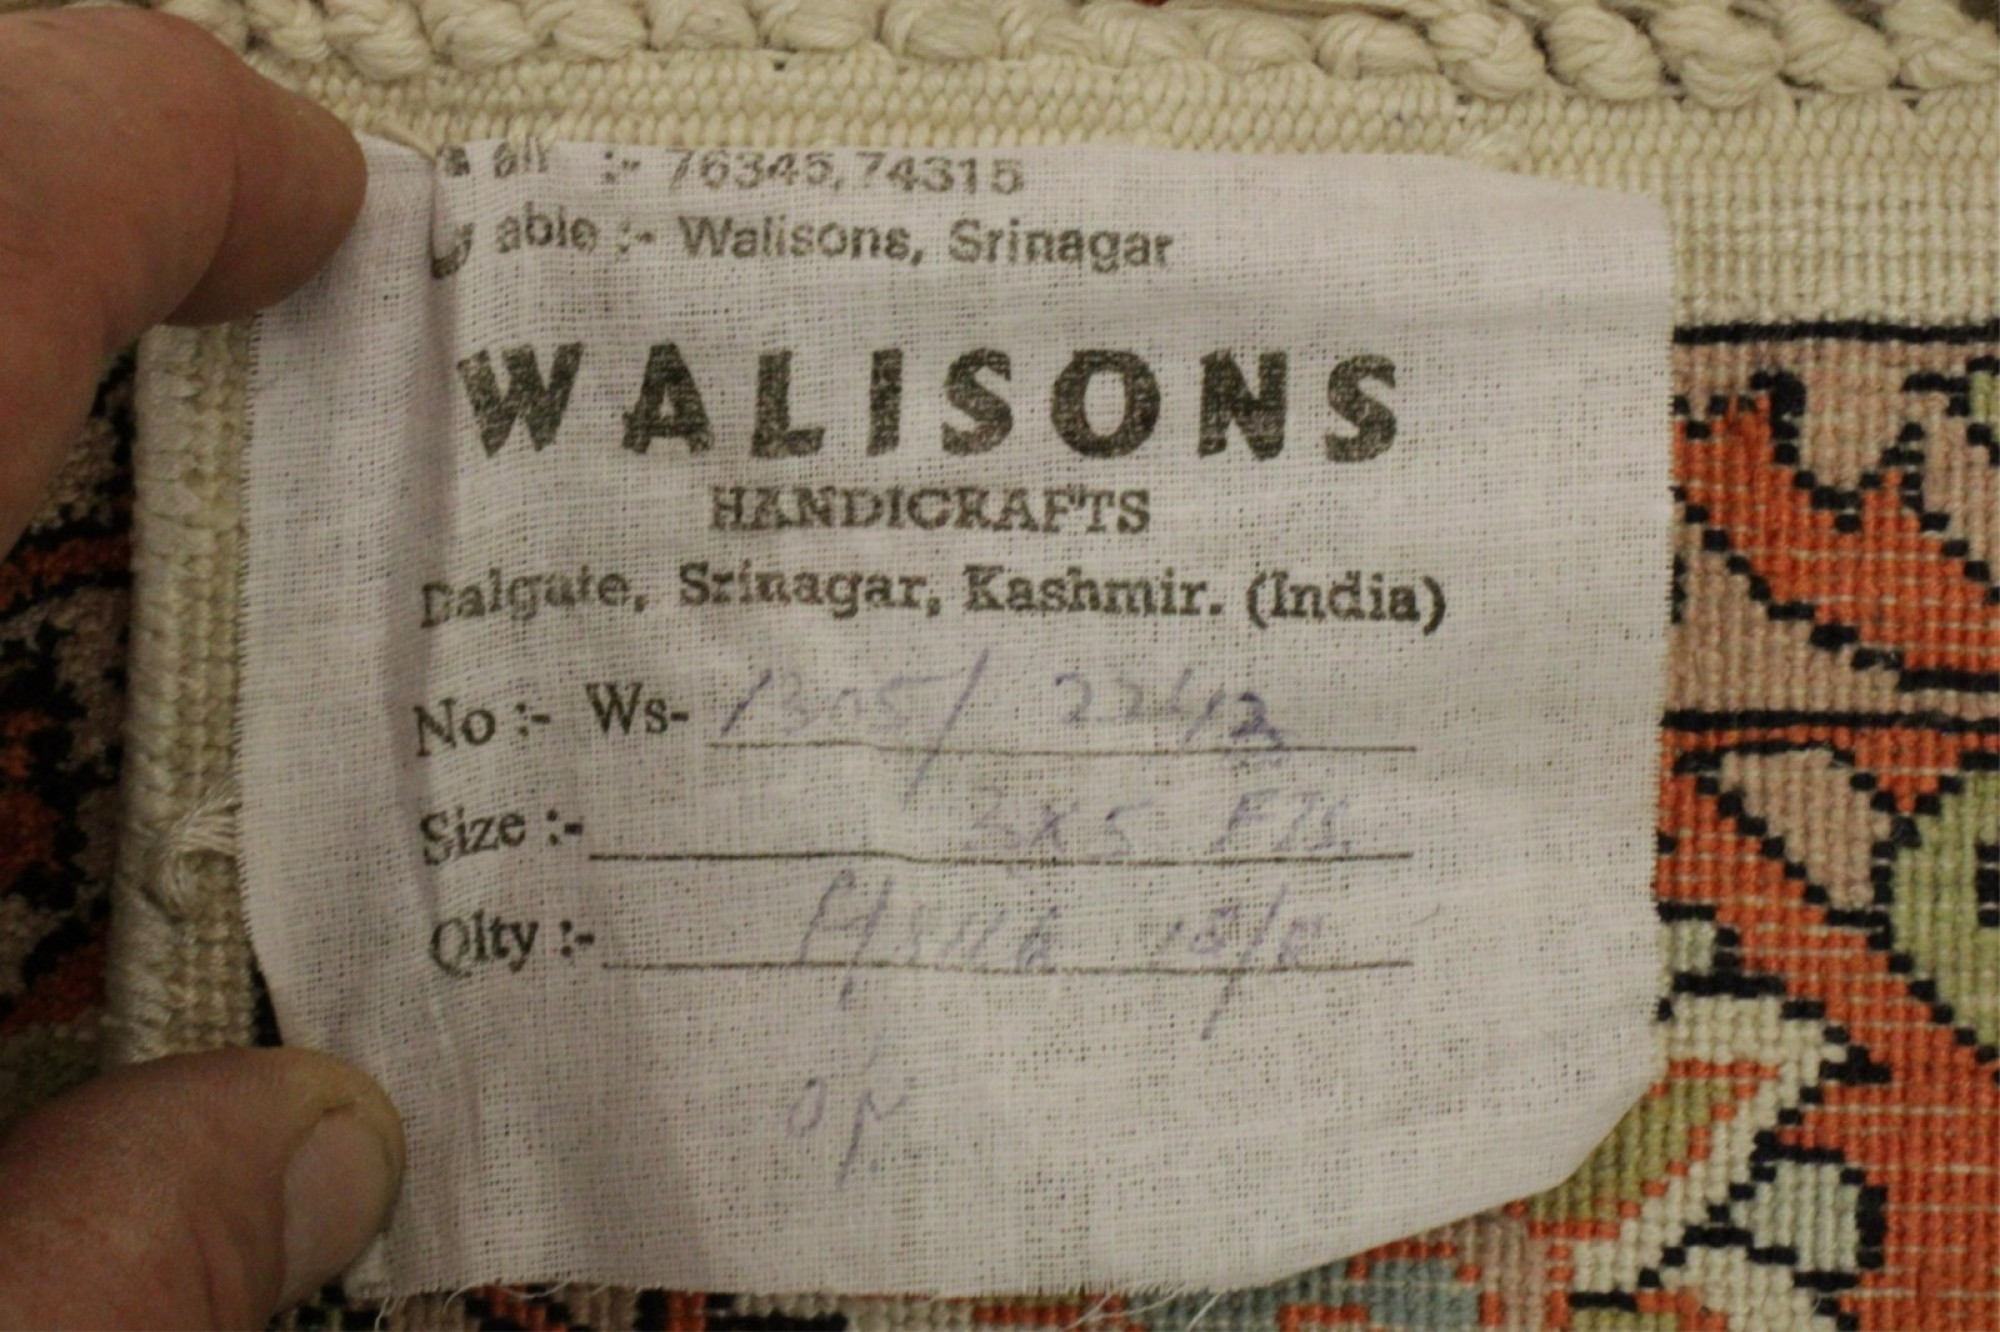 :- 76345,74315
able :- Walisons, Srinagar
WALISONS
HANDICRAFTS
Dalgate, Srinagar, Kashmir. (India)
No :- Ws- 1305/ 2242
Size :- 3x5 FTS.
Qlty :- P/Silk